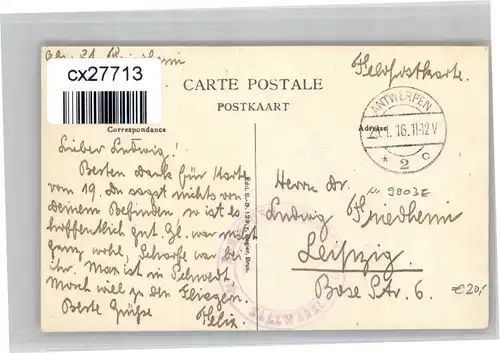 cx27713
CARTE POSTALE
POSTKAART
Feldpostkarte.
Correspondance
Adresse
ANTWERPEN
1.16.11-12V
* 2 c
Lieber Ludwig!
Besten Dank für Karte
vom 19. Du sagst nichts von
Deinem Befinden, so ist es
hoffentlich gut. Gl. war nicht
ganz wohl, Scharfe war bei
ihr. Max ist in Schwedt
Moch will zu den Fliegern.
Beste Grüße
Felix.
Herrn Dr.
Ludwig Friedheim
Leipzig.
Bose Str. 6.
€20,-